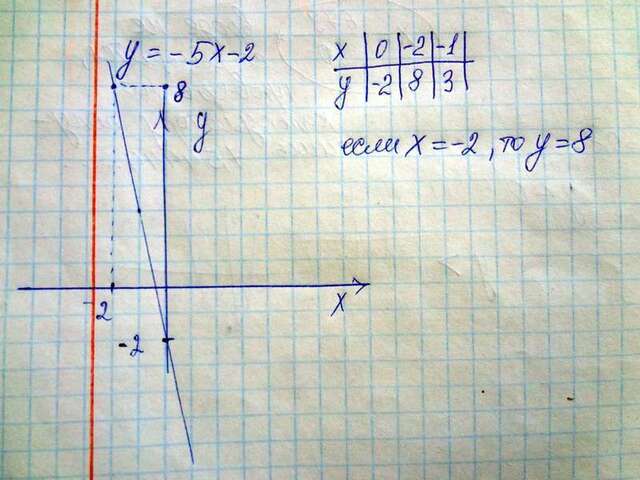 y = -5x-2
x | 0 | -2 | -1 |
y | -2 | 8 | 3 |
8
y
если x = -2, то y = 8
-2
x
-2